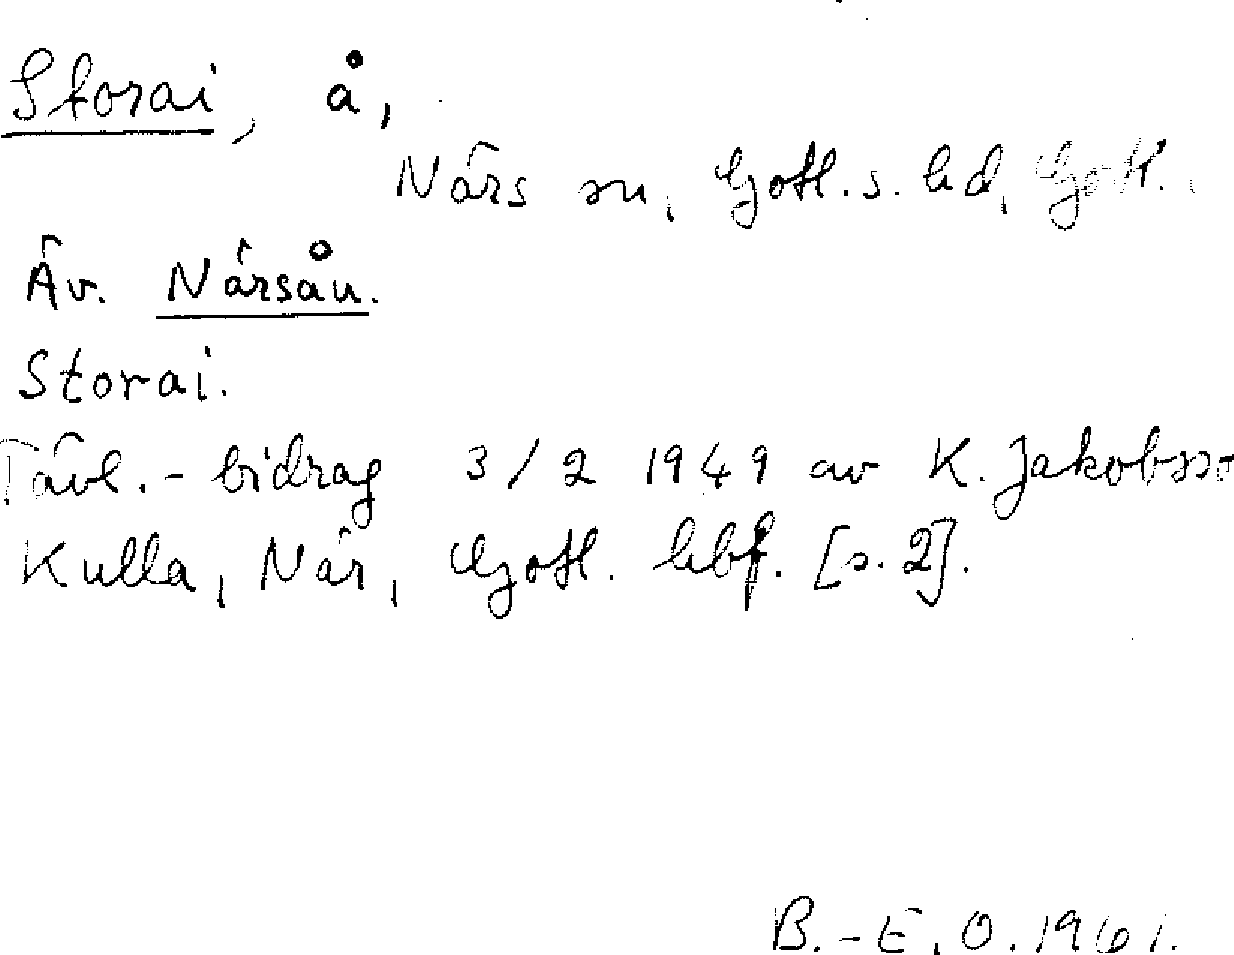 Storai, å,
Närs sn, Gotl. s. hd, Gotl.
Äv. Närsån.
Storai.
Tävl.-bidrag 3/2 1949 av K. Jakobsso
Kulla, När, Gotl. hbf. [s. 2].
B.-E. O. 1961.